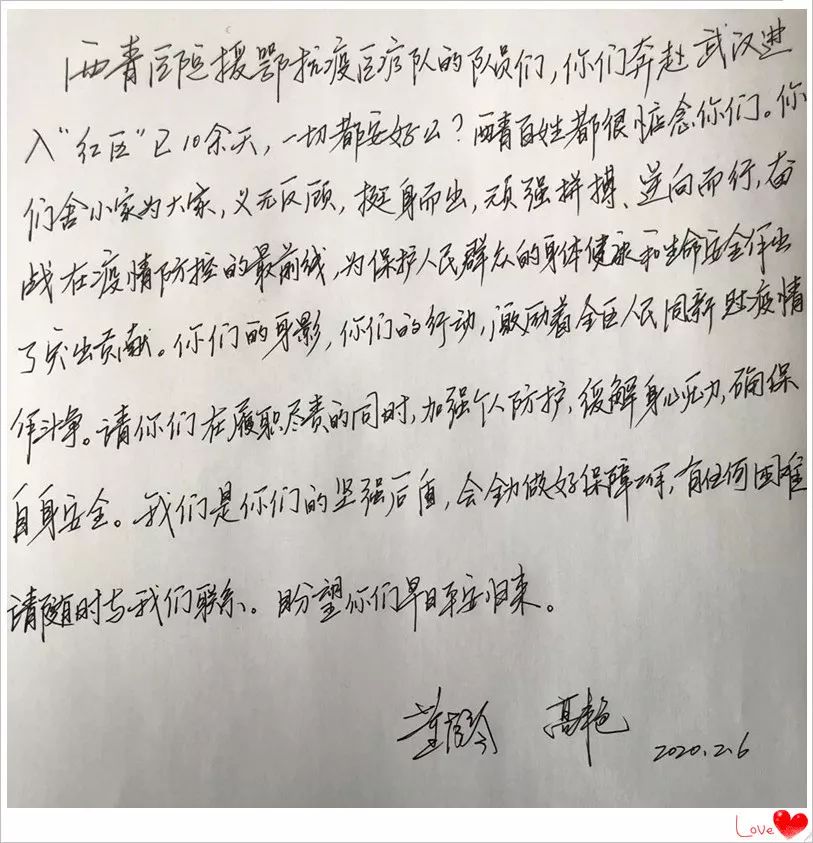 西青医院援鄂抗疫医疗队的队员们,你们奔赴武汉进
入“红区”已10余天,一切都安好么?西青百姓都很惦念你们。你
们舍小家为大家,义无反顾,挺身而出,顽强拼搏、逆向而行,奋
战在疫情防控的最前线,为保护人民群众的身体健康和生命安全作出
了突出贡献。你们的身影,你们的行动,激励着全区人民同新冠疫情
作斗争。请你们在履职尽责的同时,加强个人防护,缓解身心压力,确保
自身安全。我们是你们的坚强后盾,会全力做好保障工作,有任何困难
请随时与我们联系。盼望你们早日平安归来。
高艳 2020.2.6
Love